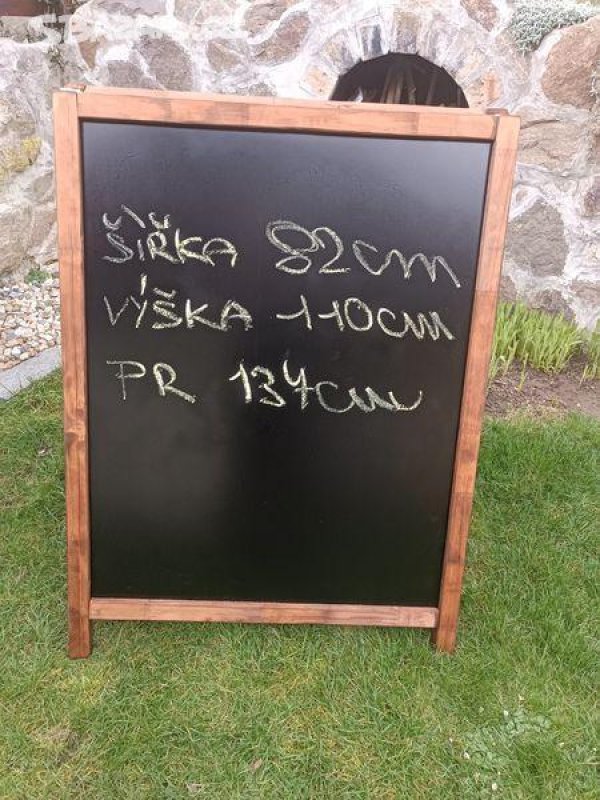 ŠÍŘKA 82cm
VÝŠKA 110cm
PR 134cm